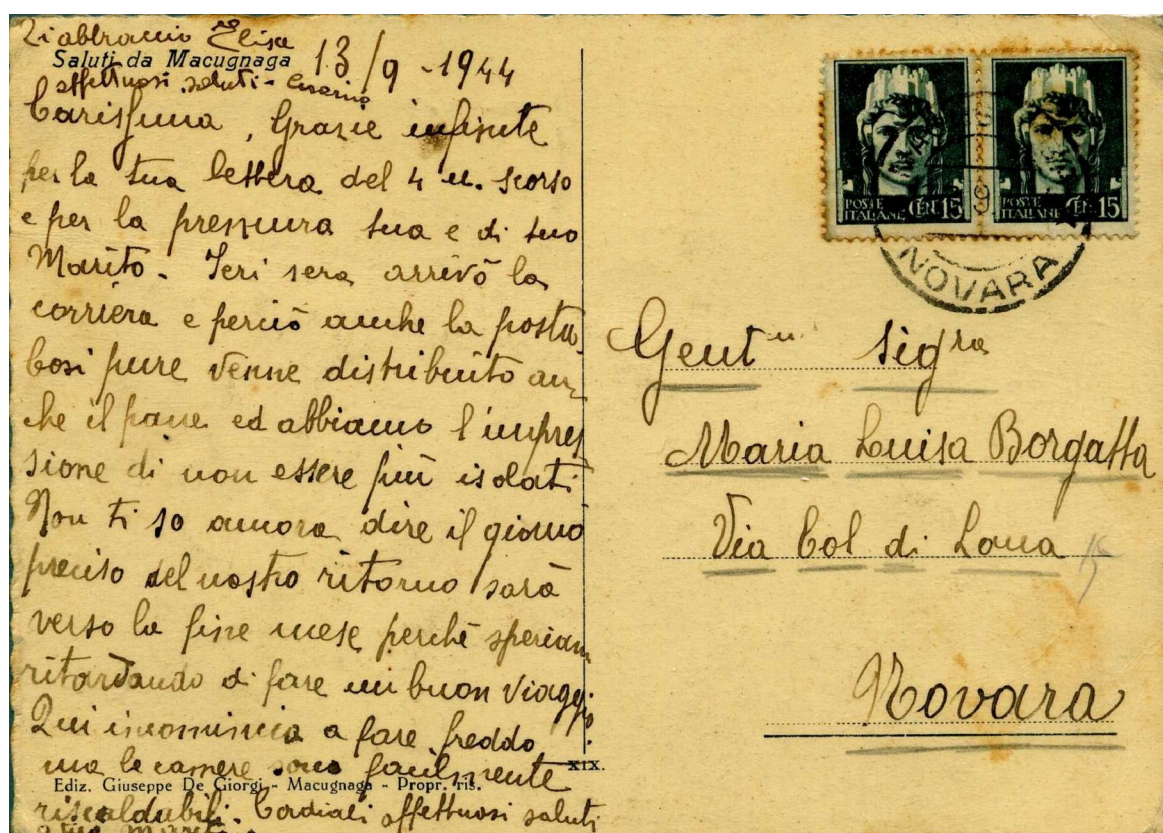 Ti abbraccio Elisa
Saluti da Macugnaga 13/9-1944
affettuosi saluti -
Carissima, Grazie infinite
per la tua lettera del 4 u. scorso
e per la premura tua e di tuo
Marito. Ieri sera arrivò la
corriera e perciò anche la posta
Così pure venne distribuito an-
che il pane ed abbiamo l'impres
sione di non essere più isolati
Non ti so ancora dire il giorno
preciso del nostro ritorno sarà
verso la fine mese perché speriam
ritardando di fare un buon viaggio.
Qui incomincia a fare freddo
ma le camere sono facilmente
XIX.
Ediz. Giuseppe De Giorgi - Macugnaga - Propr. ris.
riscaldabili. Cordiali affettuosi saluti
a tuo Marito.
POSTE ITALIANE CEN. 15
POSTE ITALIANE CEN. 15
NOVARA
Gent Sigra
Maria Luisa Borgatta
Via Col di Lana 15
Novara